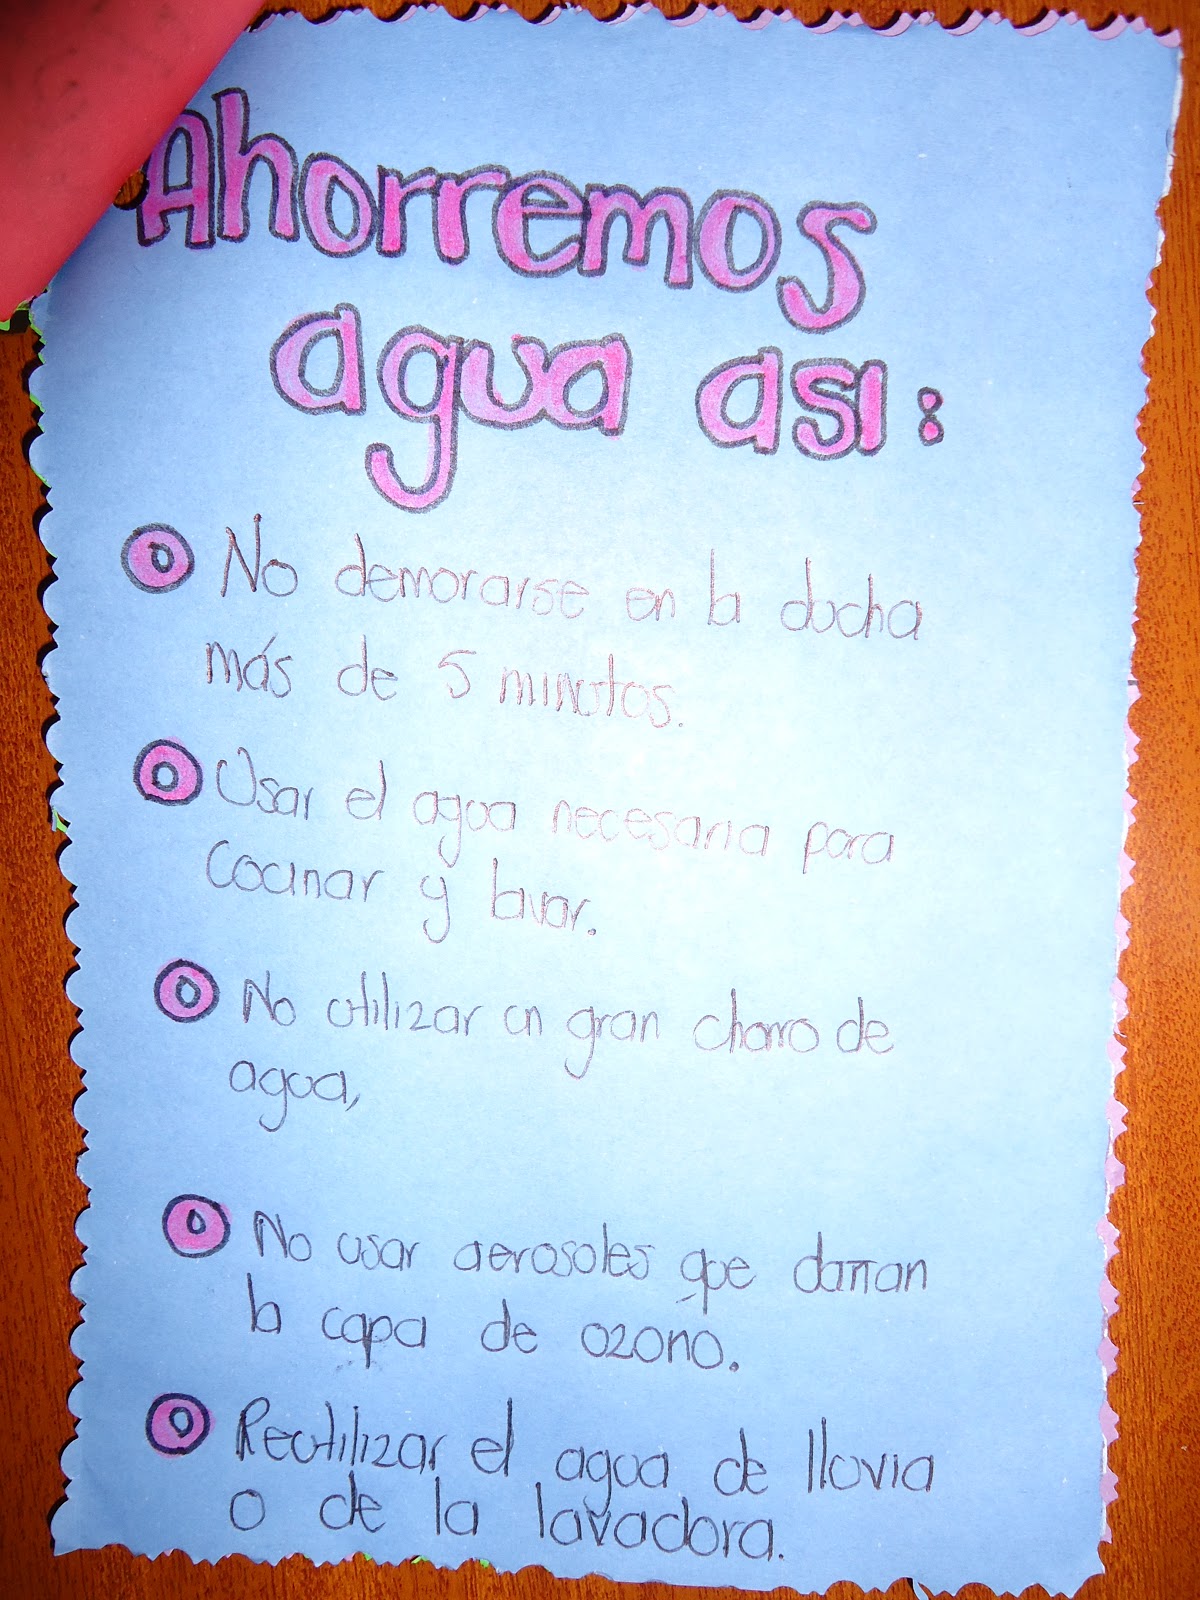 Ahorremos
agua asi:
No demorarse en la ducha
más de 5 minutos.
Usar el agua necesaria para
cocinar y lavar.
No utilizar un gran chorro de
agua,
No usar aerosoles que dañan
la capa de ozono.
Reutilizar el agua de lluvia
o de la lavadora.